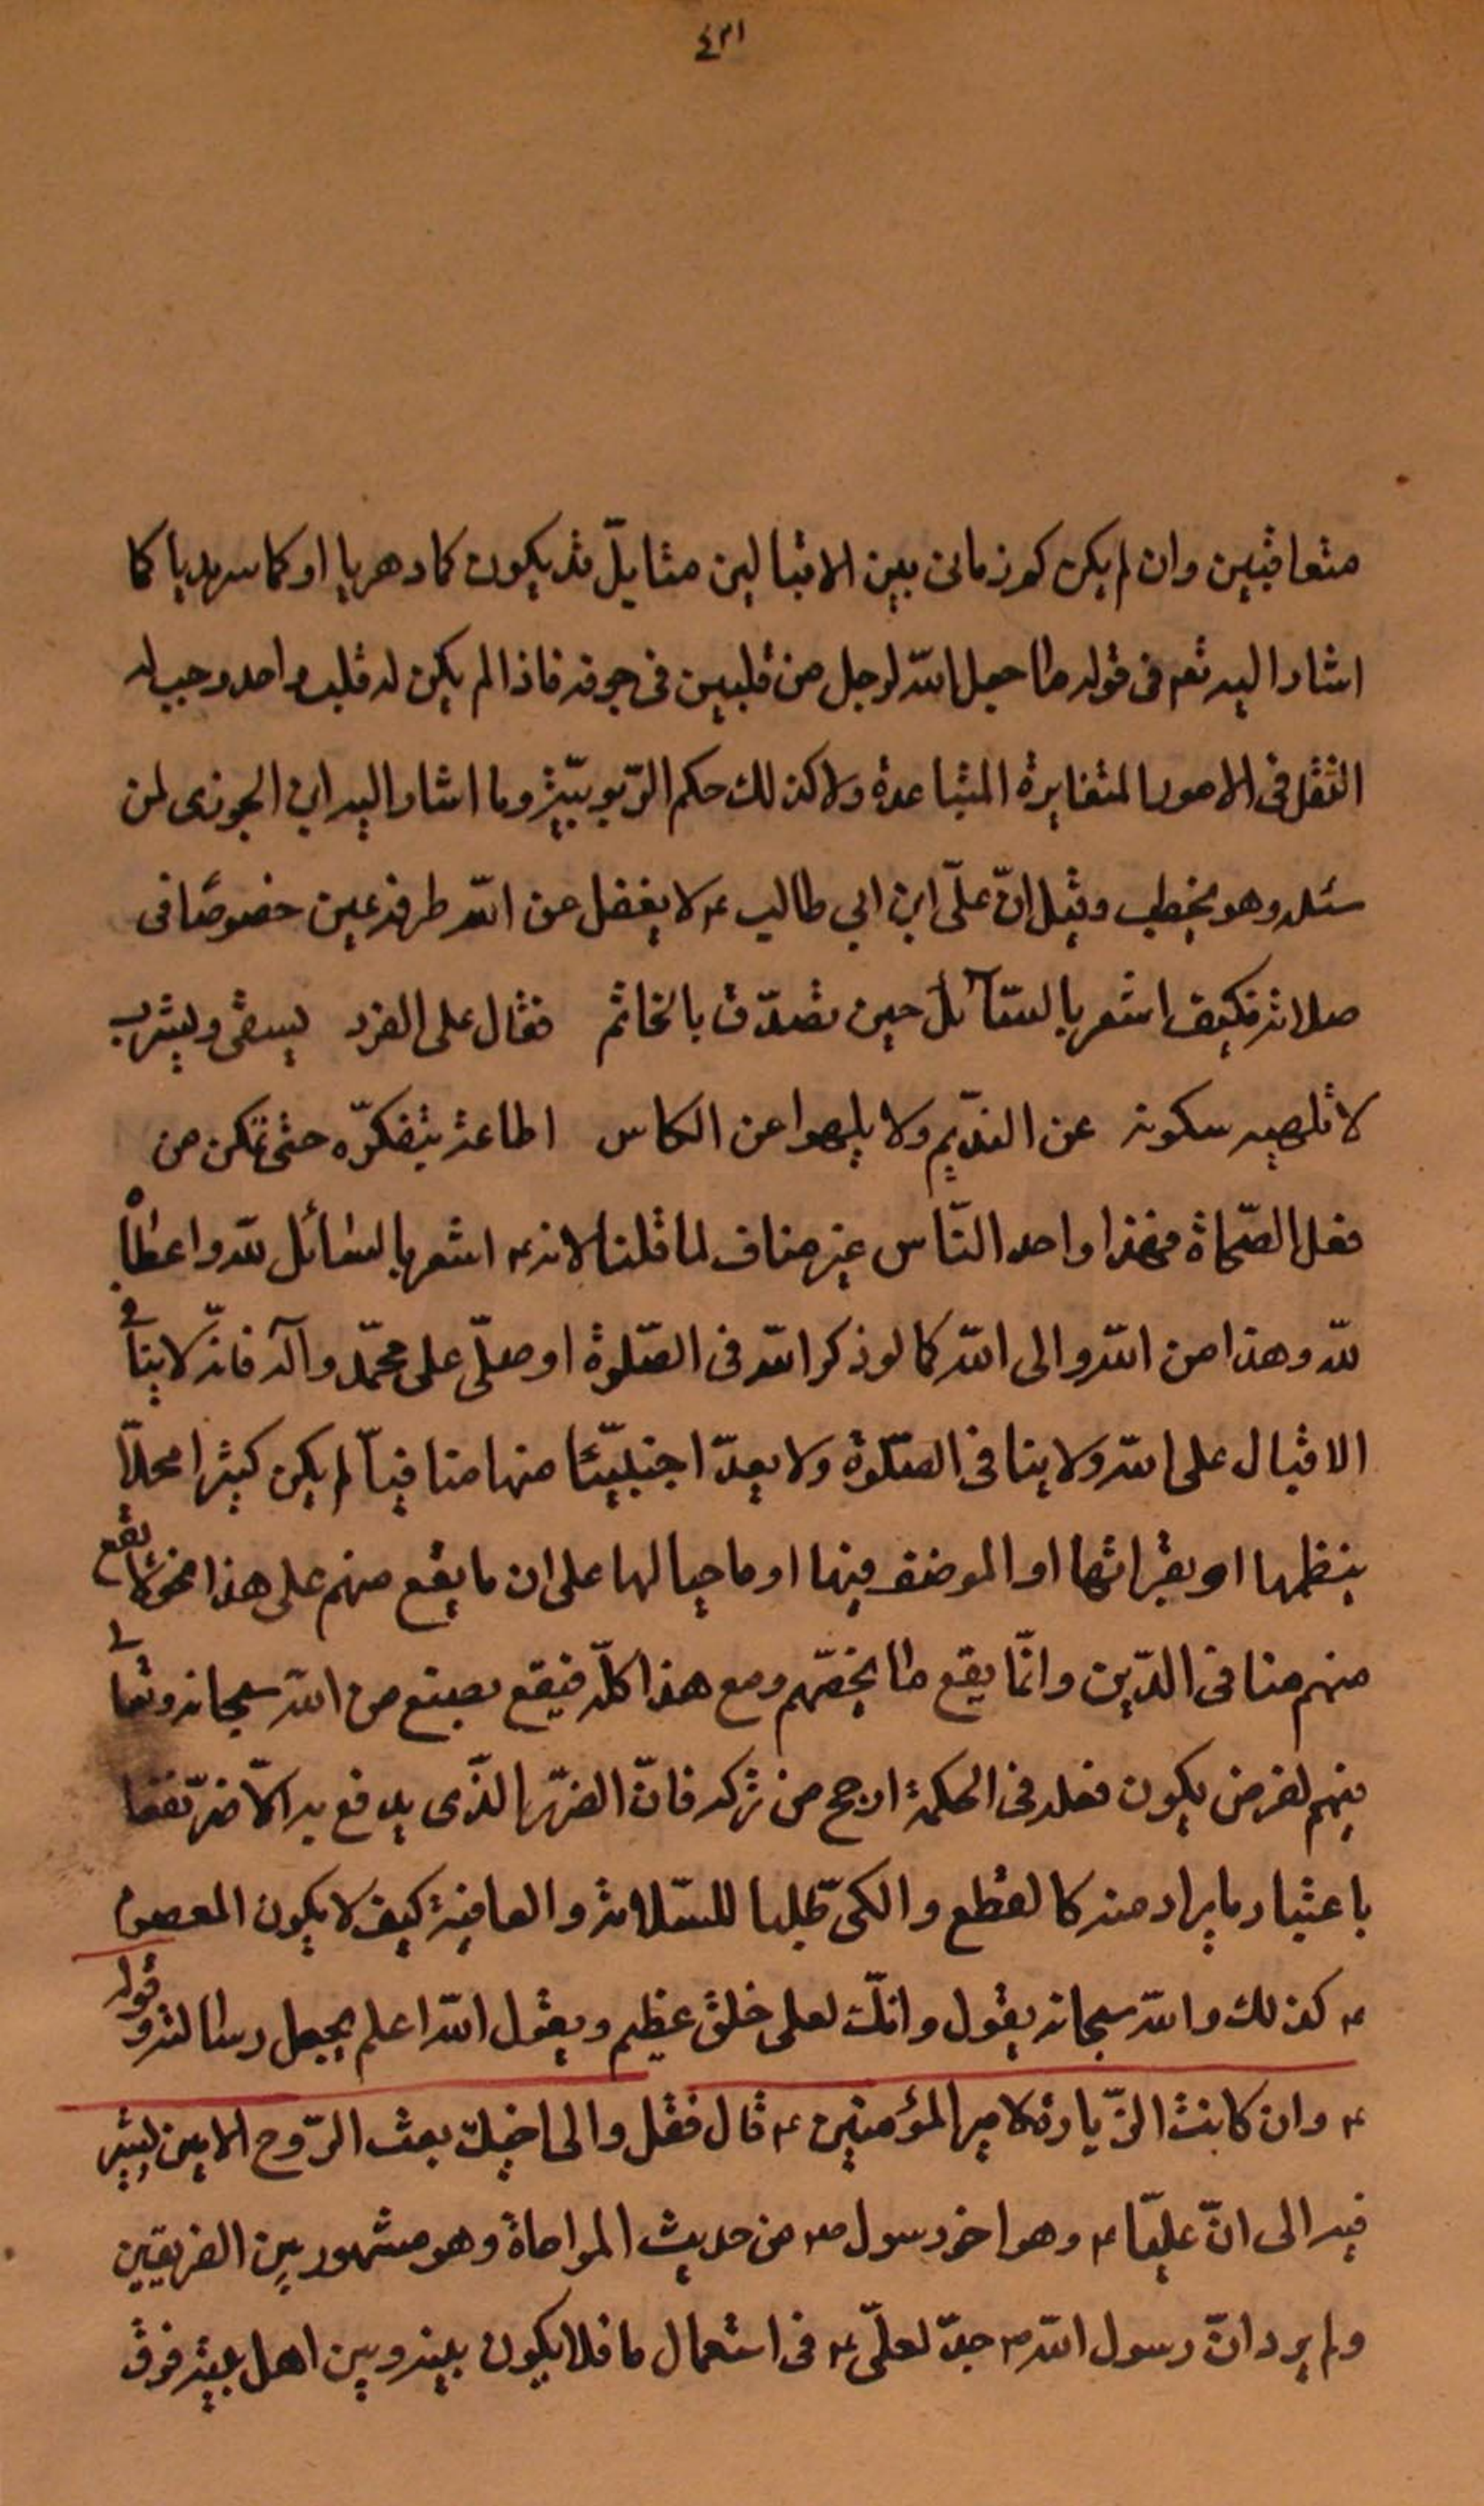 ٤٣١
متعاقبين وان لم يكن كم زمانى بين الاقبالين مثا بل قد يكون كما دهريا او كما سرمديا كما
اشار اليه تعم فى قوله ما جعل الله لرجل من قلبين فى جوفه فاذا لم يكن له قلب واحد وجب له
التقل فى الامور المتغايرة المتباعدة ولا كذلك حكم الربوبيّة وما اشار اليه ابن الجوزى لمن
سئله وهو يخطب وقيل انّ علىّ ابن ابي طالب ع لا يغفل عن الله طرفة عين خصوصًا فى
صلاته فكيف اشعر بالسّآئل حين تصدّق بالخاتم فقال على الفرد يسقى ويشرب
لا تلهيه سكرته عن النديم ولا يلهوا عن الكاس اطاعه بتفكرّه حتى تمكن من
فعل الصّحاة فهذا واحد النّاس غير مناف لما قلنا لانه ع اشعر بالسائل لله واعطاه
لله وهذا من الله والى الله كما لو ذكر الله فى الصّلوة او صلّى على محمّد وآله فانّه لا ينافى
الاقبال على الله ولا ينافى الصّلوة ولا يعدّ اجنبيّئا منها منافيّا لم يكن كثيرا محلّا
بنظمها او بقرائتها او الموضف فيها او ما حيالها على ان ما يقع منهم على هذا النحو لا يقع
منهم منافى الدّين وانّما يقع ما يخصّهم ومع هذا كلّه فيقع بصنع من الله سبحانه وتعالى
فيهم لغرض يكون فعله فى الحكمة ارجح من تركه فانّ الضرّر الّذى يدفع به الاضرّ نفعا
باعتبار ما يراد منه كالقطع والكىّ طلبا للسّلامة والعافية كيف لا يكون المعصوم
ع كذلك والله سبحانه يقول وانّك لعلى خلق عظيم ويقول الله اعلم يجعل رسالته وقوله
ع وان كانت الزّيارة لامير المؤمنين ع قال فقل والى اخيك بعث الرّوح الامين يشير
فيه الى انّ عليّا ع وهو اخو رسول ص من حديث المواخاة وهو مشهور بين الفريقين
ولم يرد انّ رسول الله ص جدّ لعلىّ ع فى استعمال ما فلا يكون بينه وبين اهل بيته فرق